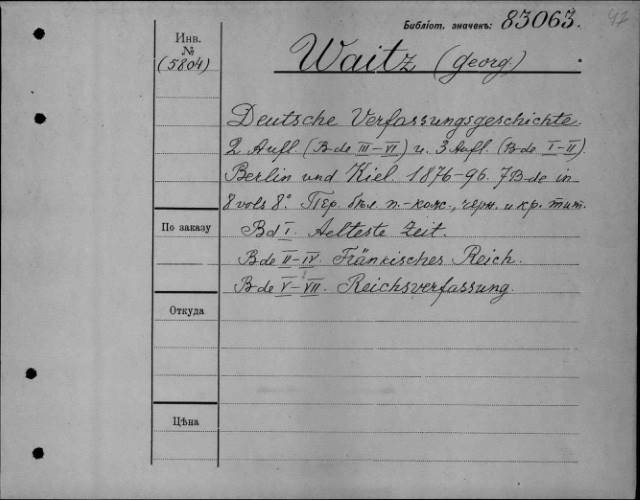 Библіот. значекъ: 83063. 42
Инв.
№
(5804)
Waitz (Georg.)
Deutsche Verfassungsgeschichte.
2 Aufl. (B-de III–VI) u. 3 Aufl. (B-de I–II).
Berlin und Kiel. 1876–96. 7 B-de in
8 vols 8°. Пер. бѣл. п.-кож., черн. и кр. тит.
По заказу
Bd I. Aelteste Zeit.
B-de II–IV. Fränkisches Reich.
B-de V–VII. Reichsverfassung.
Откуда
Цѣна